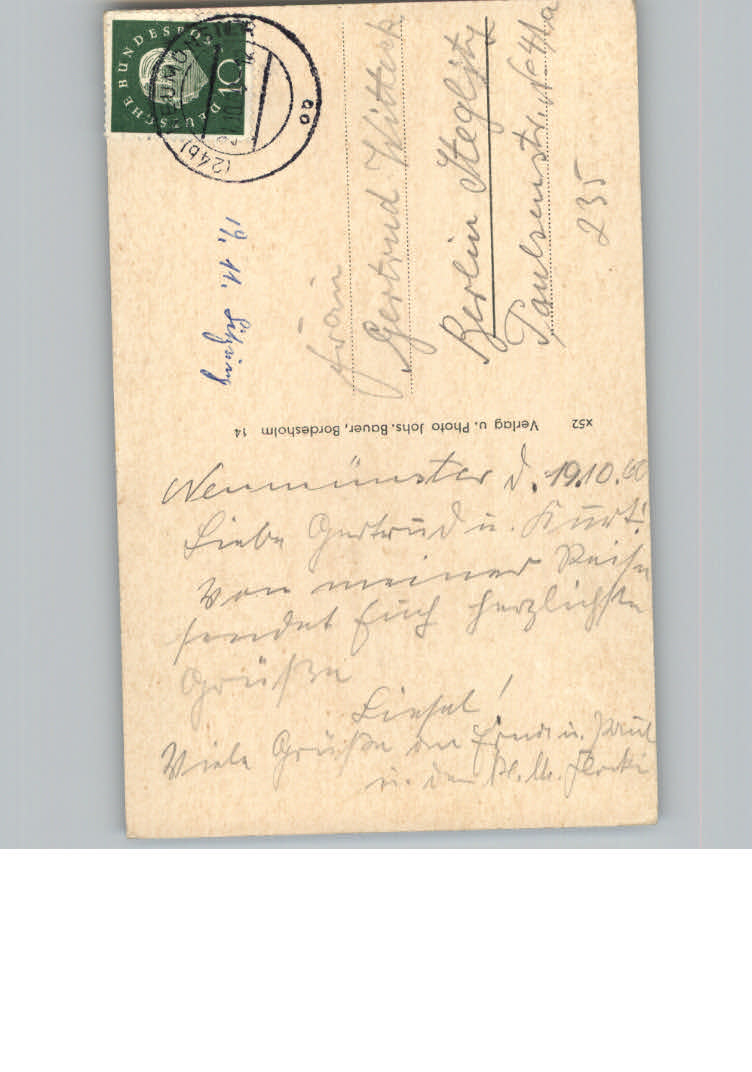 Neumünster d. 19.10.60
Liebe Gertrud u. Kurt!
Von meiner Reise
sendet Euch herzlichste
Grüße
Liesel!
Viele Grüße an Erna u. Paul
u. den
x52 Verlag u. Photo Johs. Bauer, Bordesholm 14
DEUTSCHE BUNDESPOST
10
(24b) NEUMÜNSTER
Frau
Gertrud Witteck
Berlin Steglitz
Paulsenstr. No 44a
235
19. 11.